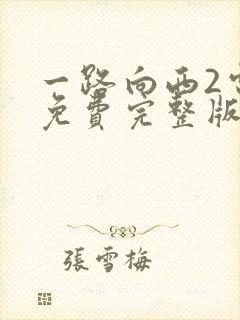 一路向西2
免费完整版
張雪梅